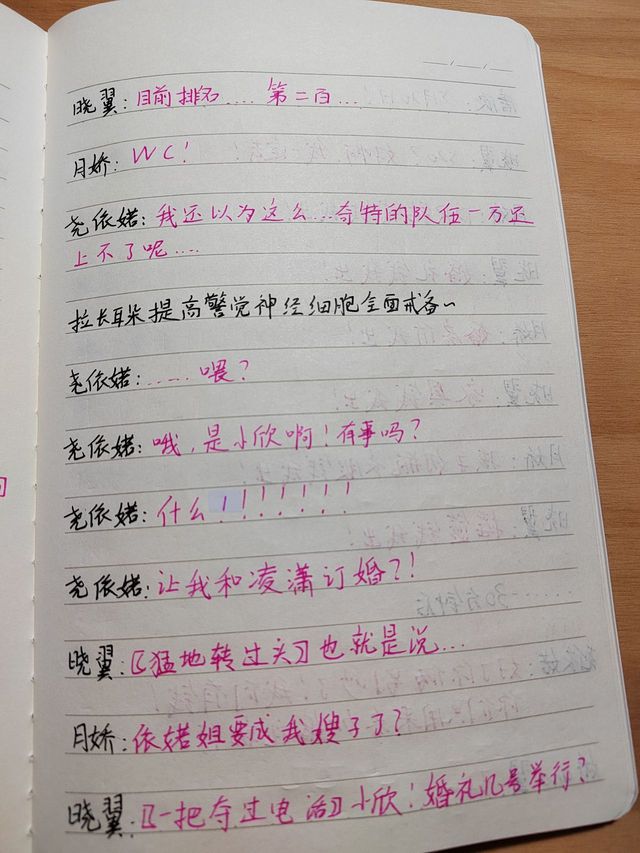 晓翼:目前排名.... 第二百...
月娇:WC!
尧依婼:我还以为这么...奇特的队伍一万还
上不了呢....
拉长耳朵提高警觉神经细胞全面戒备~
尧依婼:..... 喂?
尧依婼:哦,是小欣啊!有事吗?
尧依婼:什么!!!!!!!
尧依婼:让我和凌潇订婚?!
晓翼:〖猛地转过头〗也就是说...
月娇:依婼姐要成我嫂子了?
晓翼:〖一把夺过电话〗小欣!婚礼几号举行?